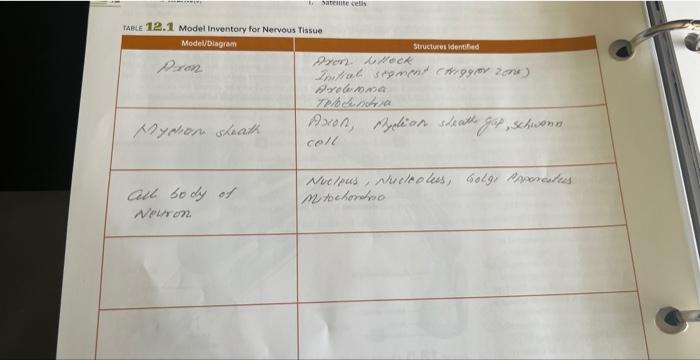 1. Satellite cells
TABLE 12.1 Model Inventory for Nervous Tissue
Model/Diagram
Structures Identified
Axon
Axon hillock
Initial segment (trigger zone)
Axolemma
Telodendria
Myelion sheath
Axon, Myelian sheath gap, schwann
cell
Cell body of
Neuron
Nucleus, Nucleolus, Golgi Apparatus
Mitochondria